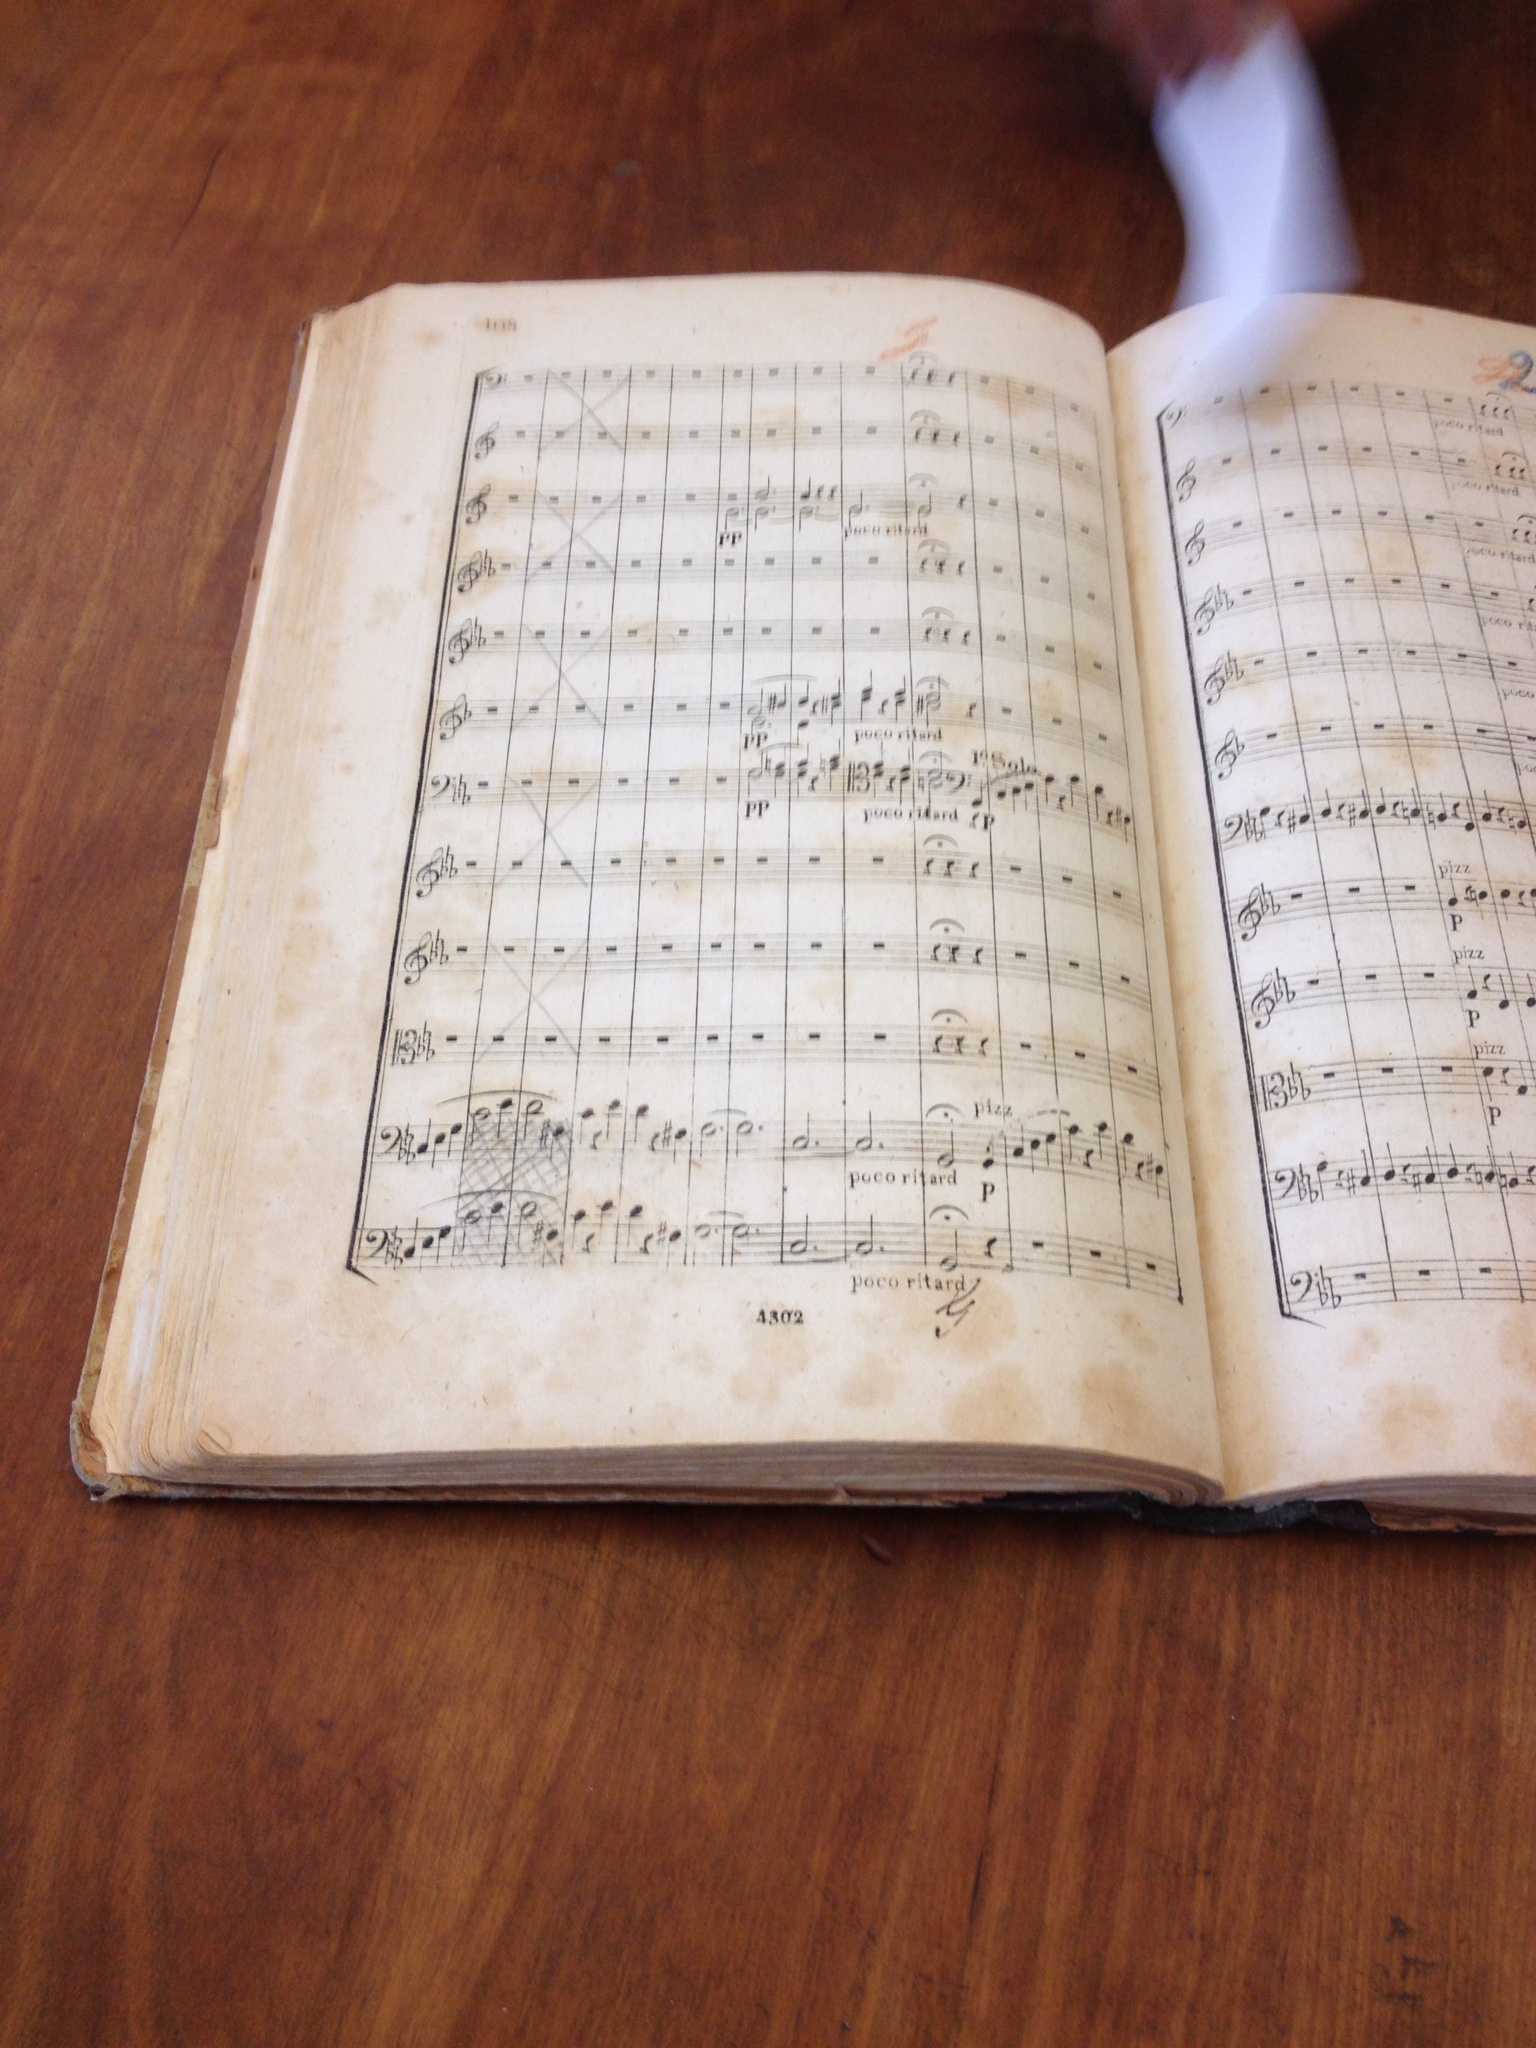 108
pp
poco ritard
pp
poco ritard
1º Solo
pp
poco ritard
p
pizz
poco ritard
p
poco ritard
4302
2
poco ritard
poco ritard
poco ritard
pizz
p
pizz
p
pizz
p